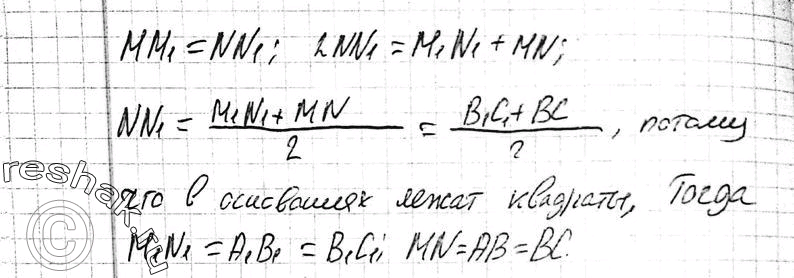 MM₁ = NN₁; 2NN₁ = M₁N₁ + MN;
NN₁ = (M₁N₁ + MN)/2 = (B₁C₁ + BC)/2, потому
что в основаниях лежат квадраты, Тогда
M₁N₁ = A₁B₁ = B₁C₁; MN = AB = BC.
reshak.ru